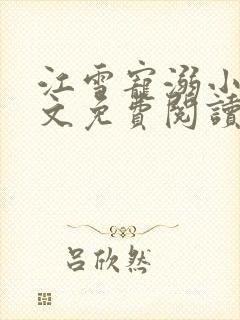 江雪寵溺小
文免費閱讀
呂欣然